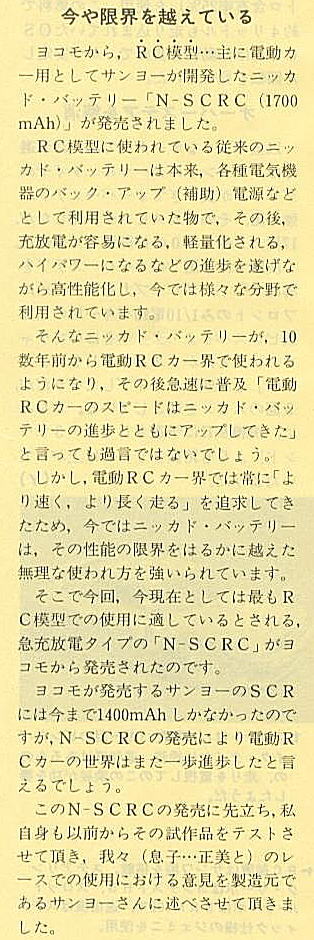 今や限界を越えている
　ヨコモから，ＲＣ模型…主に電動カ
ー用としてサンヨーが開発したニッカ
ド・バッテリー「N-ＳＣＲＣ（1700
mAh）」が発売されました。
　ＲＣ模型に使われている従来のニッ
カド・バッテリーは本来，各種電気機
器のバック・アップ（補助）電源など
として利用されていた物で，その後，
充放電が容易になる，軽量化される，
ハイパワーになるなどの進歩を遂げな
がら高性能化し，今では様々な分野で
利用されています。
　そんなニッカド・バッテリーが，10
数年前から電動ＲＣカー界で使われる
ようになり，その後急速に普及「電動
ＲＣカーのスピードはニッカド・バッ
テリーの進歩とともにアップしてきた」
と言っても過言ではないでしょう。
　しかし，電動ＲＣカー界では常に「よ
り速く，より長く走る」を追求してき
たため，今ではニッカド・バッテリー
は，その性能の限界をはるかに越えた
無理な使われ方を強いられています。
　そこで今回，今現在としては最もＲ
Ｃ模型での使用に適しているとされる，
急充放電タイプの「N-ＳＣＲＣ」がヨ
コモから発売されたのです。
　ヨコモが発売するサンヨーのＳＣＲ
には今まで1400mAhしかなかったので
すが，N-ＳＣＲＣの発売により電動Ｒ
Ｃカーの世界はまた一歩進歩したと言
えるでしょう。
　このN-ＳＣＲＣの発売に先立ち，私
自身も以前からその試作品をテストさ
せて頂き，我々（息子…正美と）のレ
ースでの使用における意見を製造元で
あるサンヨーさんに述べさせて頂きま
した。